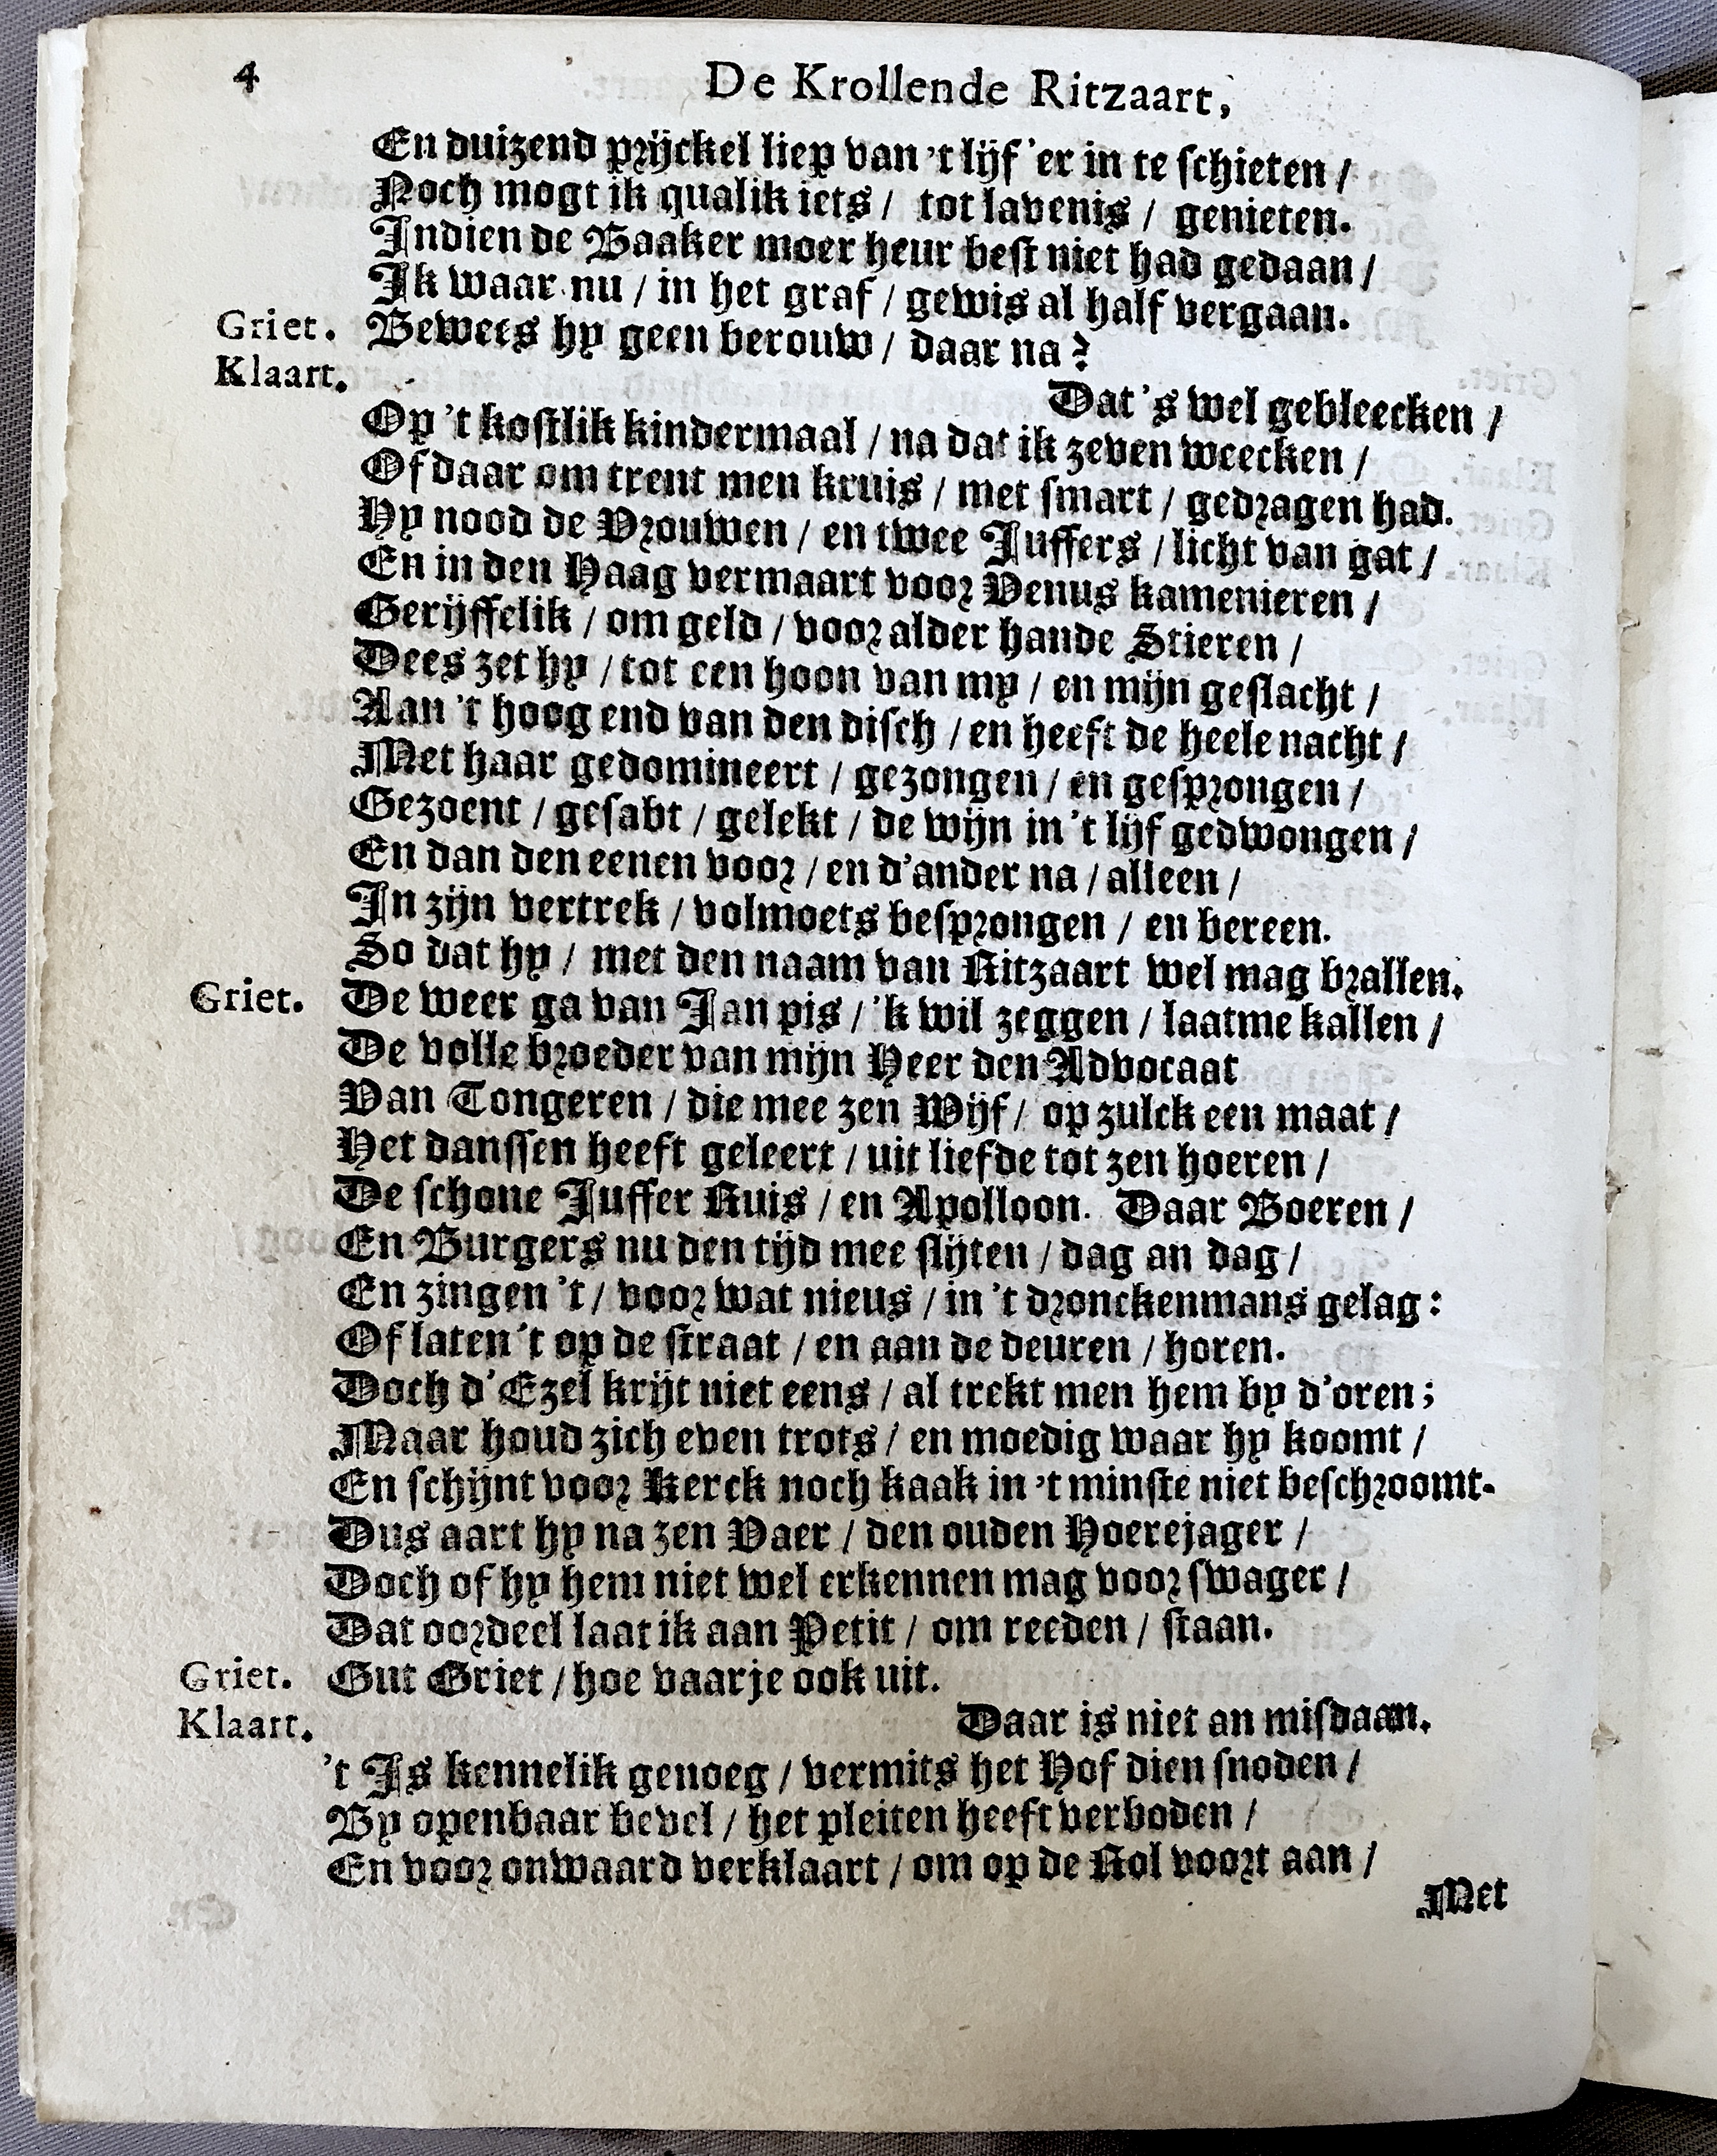 4 De Krollende Ritzaart,
En duizend prijckel liep van 't lijf 'er in te schieten /
Noch mogt ik qualik iets / tot lavenis / genieten.
Indien de Baaker moer heur best niet had gedaan /
Ik waar nu / in het graf / gewis al half vergaan.
Griet. Bewees hy geen berouw / daar na?
Klaart. Dat 's wel gebleecken /
Op 't kostlik kindermaal / na dat ik zeven weecken /
Of daar om trent men kruis / met smart / gedragen had.
Hy nood de Vrouwen / en twee Juffers / licht van gat /
En in den Haag vermaart voor Venus kamenieren /
Gerijffelik / om geld / voor alder hande Stieren /
Dees zet hy / tot een hoon van my / en mijn geslacht /
Aan 't hoog end van den disch / en heeft de heele nacht /
Met haar gedomineert / gezongen / en gesprongen /
Gezoent / gesabt / gelekt / de wijn in 't lijf gedwongen /
En dan den eenen voor / en d'ander na / alleen /
In zijn vertrek / volmoets besprongen / en bereen.
So dat hy / met den naam van Ritzaart wel mag brallen.
Griet. De weer ga van Jan pis / 'k wil zeggen / laatme kallen /
De volle broeder van mijn Heer den Advocaat
Van Tongeren / die mee zen Wijf / op zulck een maat /
Het danssen heeft geleert / uit liefde tot zen hoeren /
De schone Juffer Ruis / en Apolloon. Daar Boeren /
En Burgers nu den tijd mee slijten / dag an dag /
En zingen 't / voor wat nieus / in 't dronckenmans gelag:
Of laten 't op de straat / en aan de deuren / horen.
Doch d'Ezel krijt niet eens / al trekt men hem by d'oren;
Maar houd zich even trots / en moedig waar hy koomt /
En schijnt voor Kerck noch kaak in 't minste niet beschroomt.
Dus aart hy na zen Vaer / den ouden Hoerejager /
Doch of hy hem niet wel erkennen mag voor swager /
Dat oordeel laat ik aan Petit / om reeden / staan.
Griet. Gut Griet / hoe vaarje ook uit.
Klaart. Daar is niet an misdaan.
't Is kennelik genoeg / vermits het Hof dien snoden /
By openbaar bevel / het pleiten heeft verboden /
En voor onwaard verklaart / om op de Rol voort aan /
Met